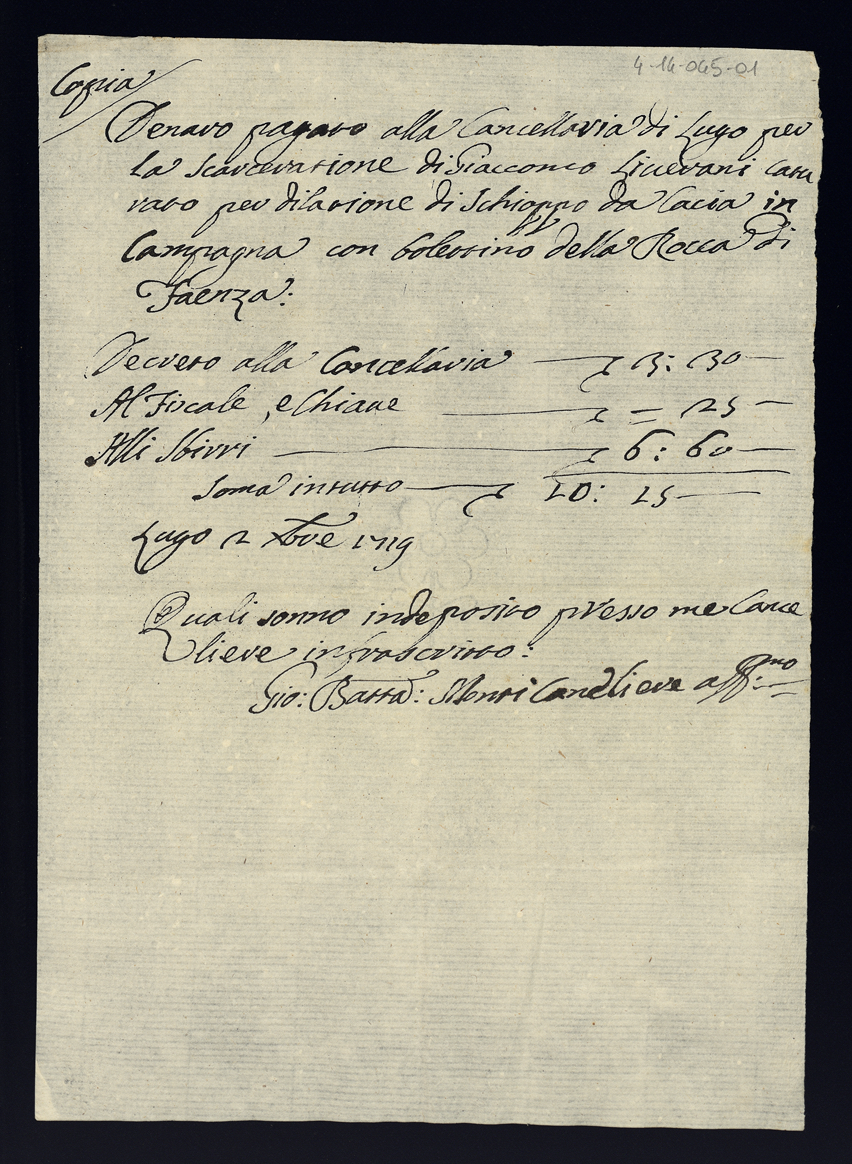 4-14-045-01
Copia
Denaro pagato alla Cancellaria di Lugo per
la scarceratione di Giaccomo Liverani catu
rato per dilatione di Schioppo da Cacia in
Campagna con bolettino della Rocca di
Faenza:
Decreto alla Cancellaria 3: 30
Al Fiscale, e Chiave = 25
Alli Sbirri 6: 60
Soma in tutto 10: 15
Lugo 2 Xbre 1719
Quali sonno in deposito presso me Cance
liere infrascritto:
Gio: Batta: Monti Cancelliere aff:mo